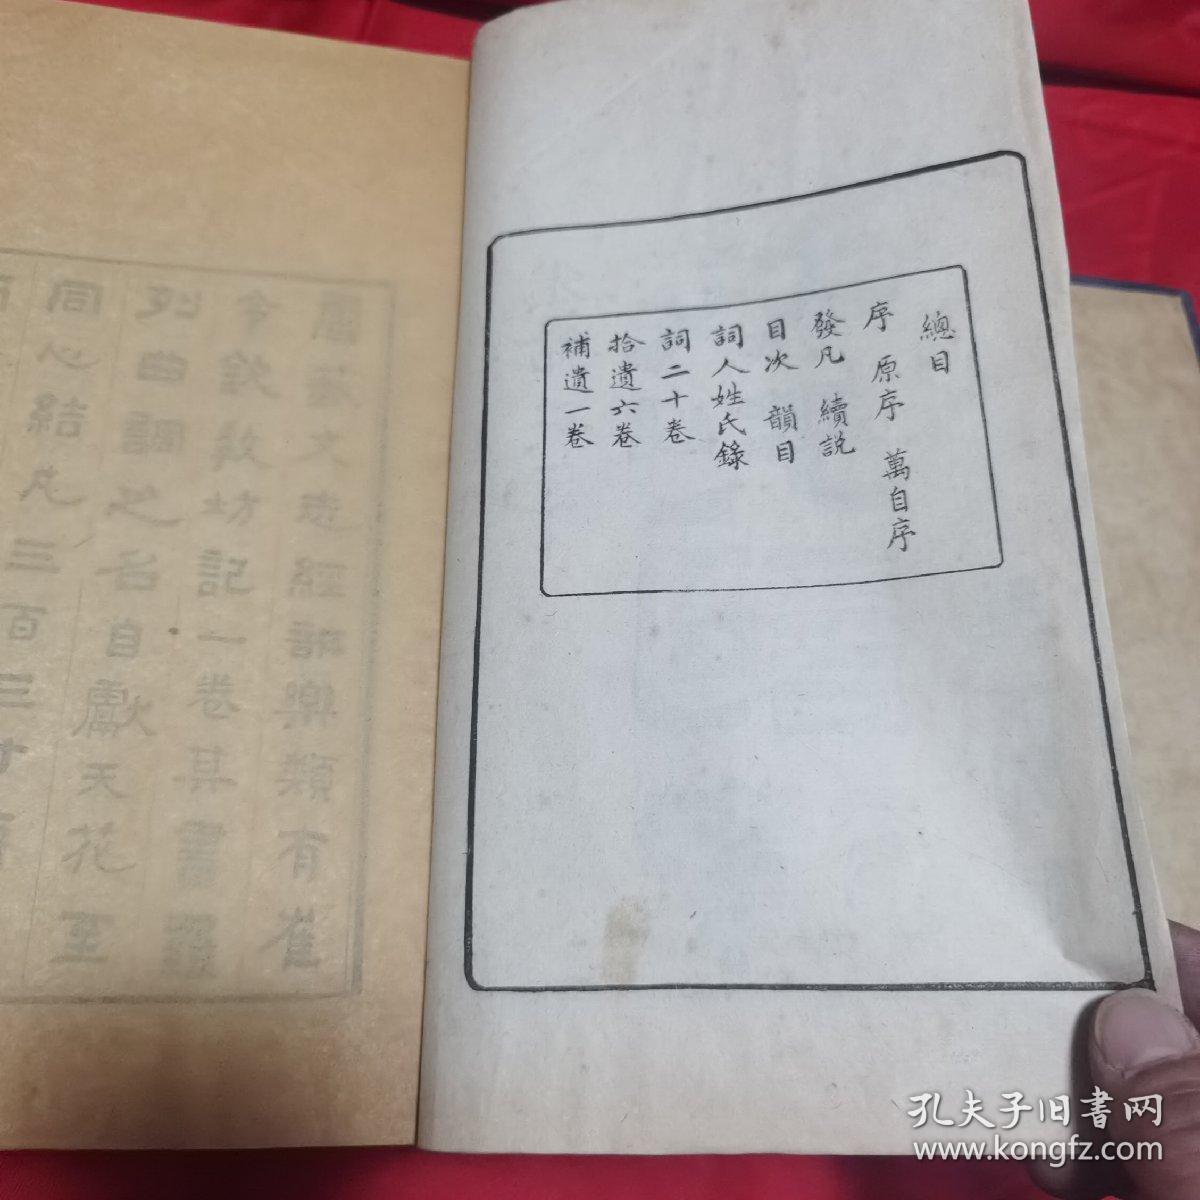 總目
序 原序 萬自序
發凡 續説
目次 韻目
詞人姓氏錄
詞二十卷
拾遺六卷
補遺一卷
經部樂類有崔
令欽教坊記一卷其書羅
列曲調之名自獻天花至
同心結凡三百三
孔夫子旧書网
www.kongfz.com